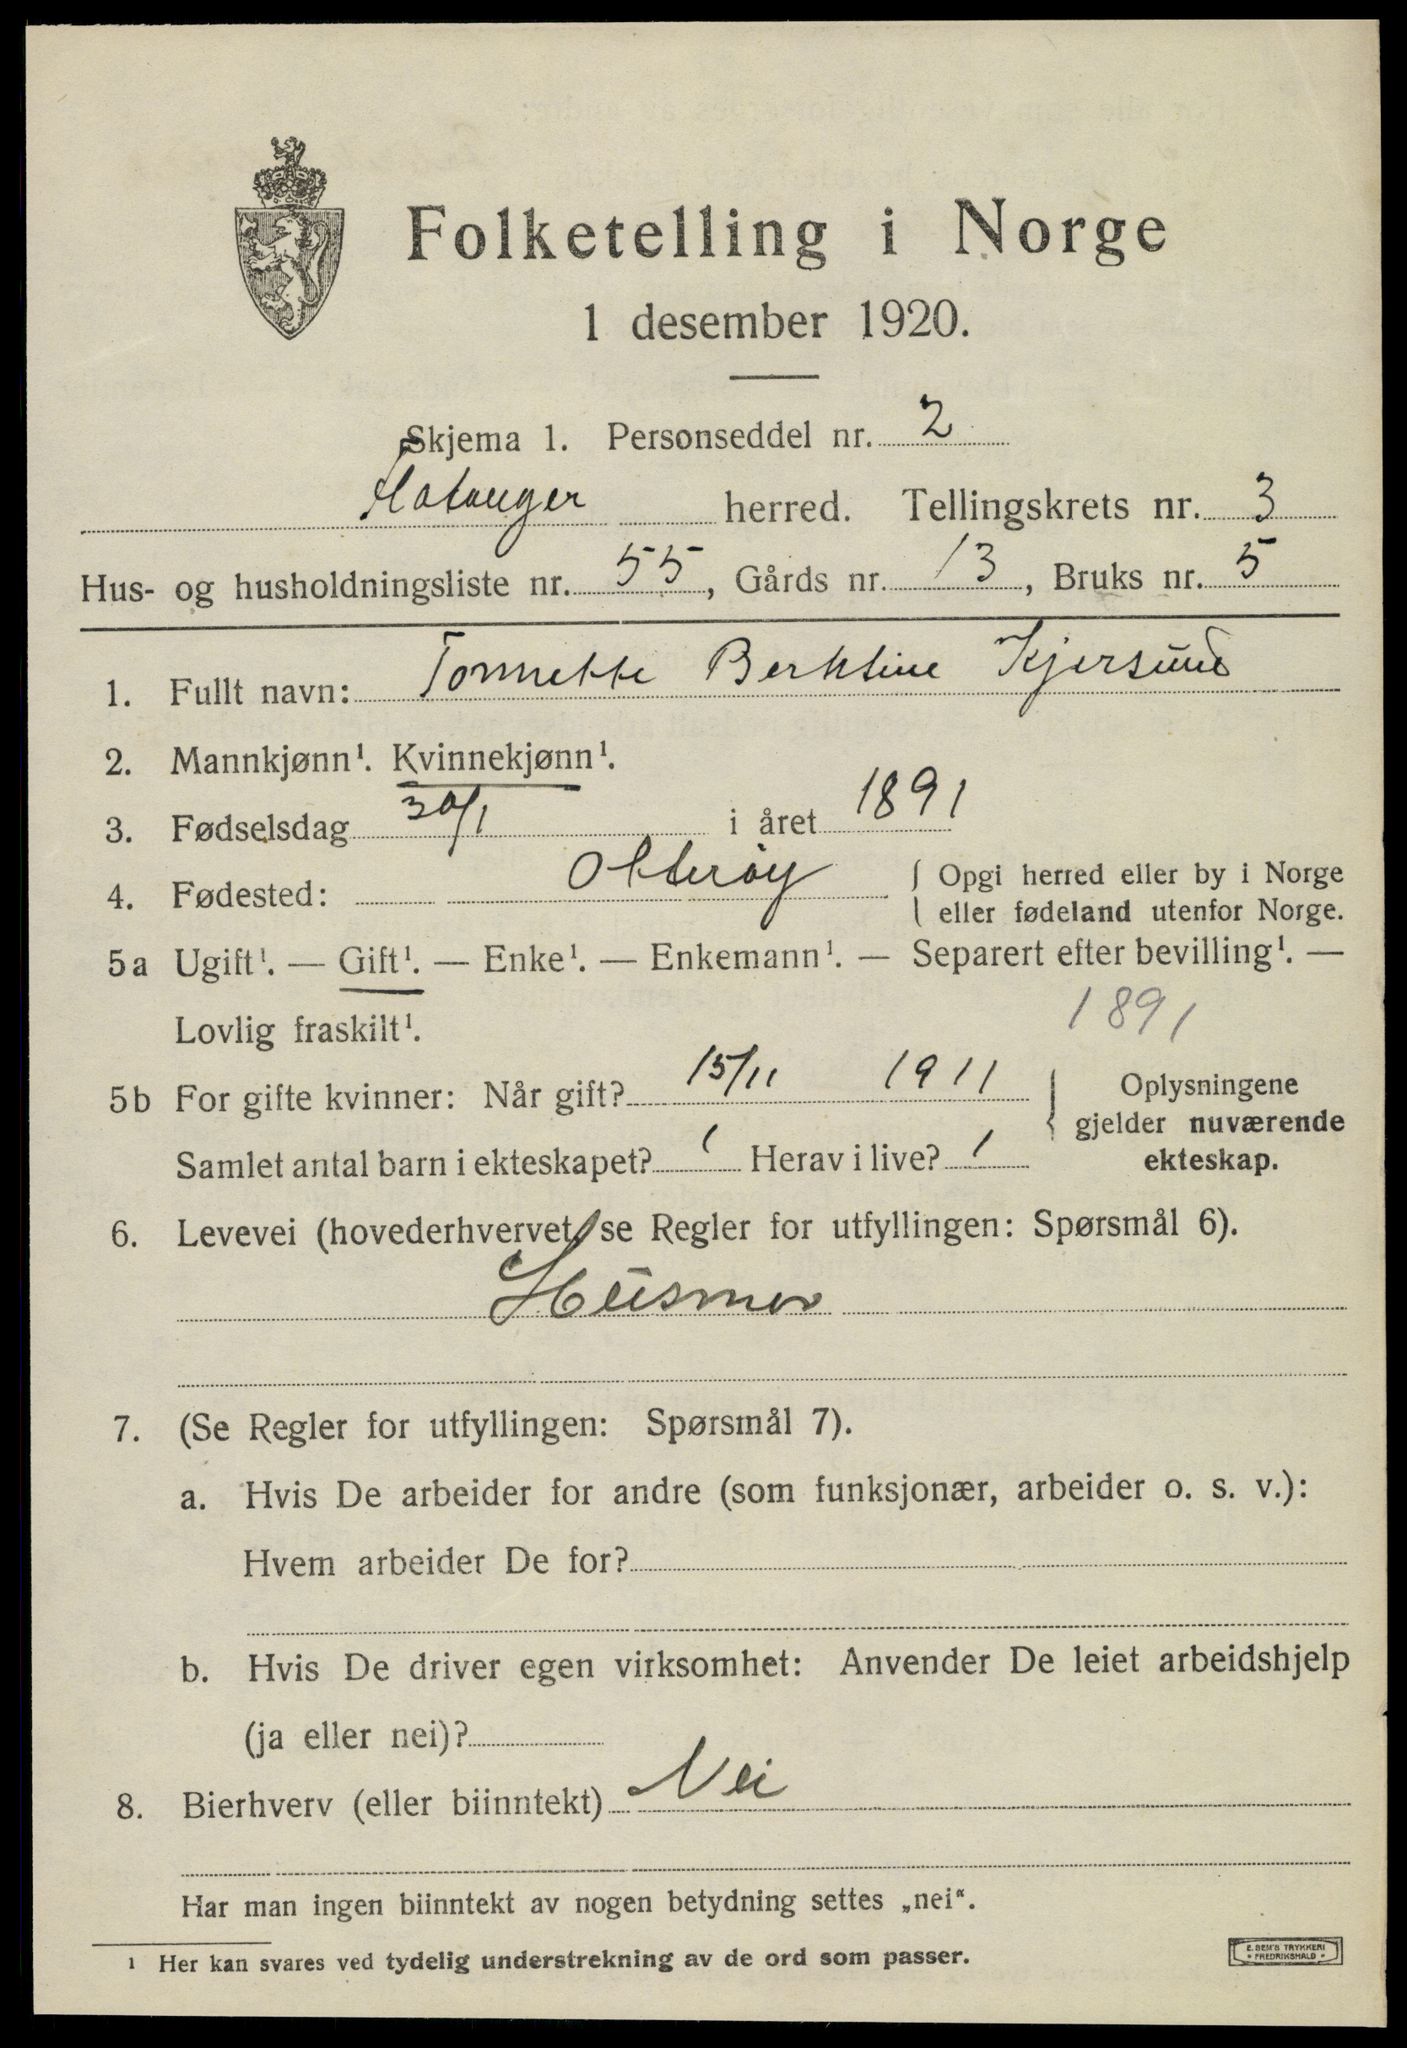 Folketelling i Norge
1 desember 1920.
Skjema 1. Personseddel nr. 2
Flatanger herred. Tellingskrets nr. 3
Hus- og husholdningsliste nr. 55, Gårds nr. 13, Bruks nr. 5
1. Fullt navn: Tonnette Berktine Kjersund
2. Mannkjønn¹. Kvinnekjønn¹.
3. Fødselsdag 30/1 i året 1891
4. Fødested: Otterøy { Opgi herred eller by i Norge
eller fødeland utenfor Norge.
5a Ugift¹. — Gift¹. — Enke¹. — Enkemann¹. — Separert efter bevilling¹. —
Lovlig fraskilt¹. 1891
5b For gifte kvinner: Når gift? 15/11 1911 } Oplysningene
gjelder nuværende
Samlet antal barn i ekteskapet? 1 Herav i live? 1 ekteskap.
6. Levevei (hovederhvervet, se Regler for utfyllingen: Spørsmål 6).
Husmor
7. (Se Regler for utfyllingen: Spørsmål 7).
a. Hvis De arbeider for andre (som funksjonær, arbeider o. s. v.):
Hvem arbeider De for?
b. Hvis De driver egen virksomhet: Anvender De leiet arbeidshjelp
(ja eller nei)?
8. Bierhverv (eller biinntekt) Nei
Har man ingen biinntekt av nogen betydning settes „nei“.
¹ Her kan svares ved tydelig understrekning av de ord som passer.
E. SEM'S TRYKKERI
• FREDRIKSHALD •